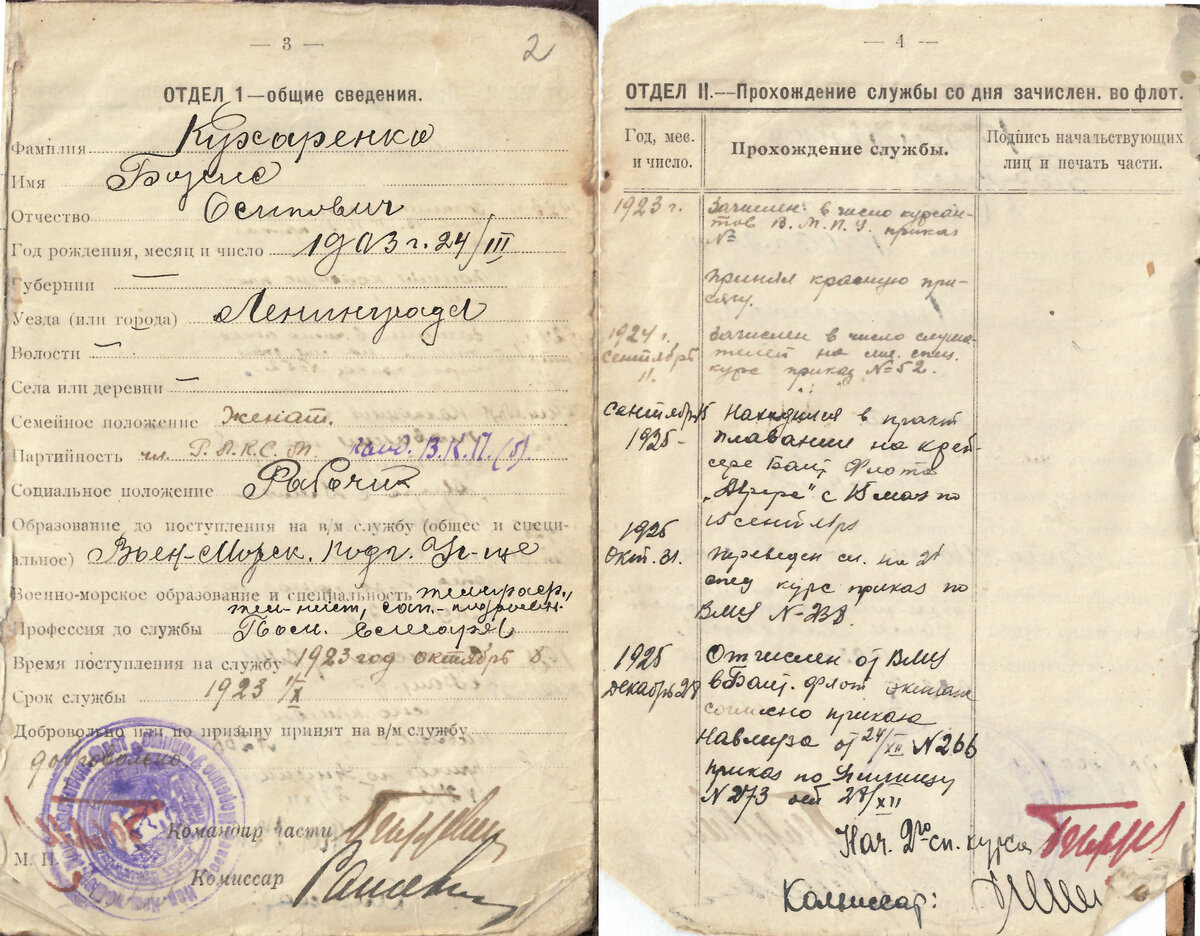 — 3 —
2
ОТДЕЛ 1—общие сведения.
Фамилия Кухаренко
Имя Борис
Отчество Осипович
Год рождения, месяц и число 1903 г. 24/III
Губернии —
Уезда (или города) Ленинграда
Волости —
Села или деревни —
Семейное положение Женат.
Партийность чл. Р.Л.К.С.М. канд. В.К.П.(б)
Социальное положение Рабочий
Образование до поступления на в/м службу (общее и специ-
альное) Воен-Морск. Подг. Уч-ще
Военно-морское образование и специальность
Профессия до службы
Время поступления на службу 1923 год октябрь
Срок службы 1923
Добровольно или по призыву принят на в/м службу
добровольно.
Командир части
М. П.
Комиссар
— 4 —
ОТДЕЛ II.—Прохождение службы со дня зачислен. во флот.
Год, мес. и число.
Прохождение службы.
Подпись начальствующих лиц и печать части.
1923 г. Зачислен в число курсан-
тов В.М.П.У. приказ
№
Принял красную при-
сягу.
1924 г. Зачислен в число слуша-
сентябрь телей на мл. спец.
11. курс приказ №=52.
сентябрь 15 Находился в практ
1925- плавании на крей-
сере Балт. Флота
"Аврора" с 15 мая по
15 сентября
1925
Окт. 31. Переведен сл. на 2й
спец курс приказ по
ВМУ №-238.
1925 Отчислен от ВМУ
декабрь 28 в Балт. флот
согласно приказа
от 24/XII №266
приказ по Училищу
№273 от 28/XII
Нач. 2го сп. курса
Комиссар: